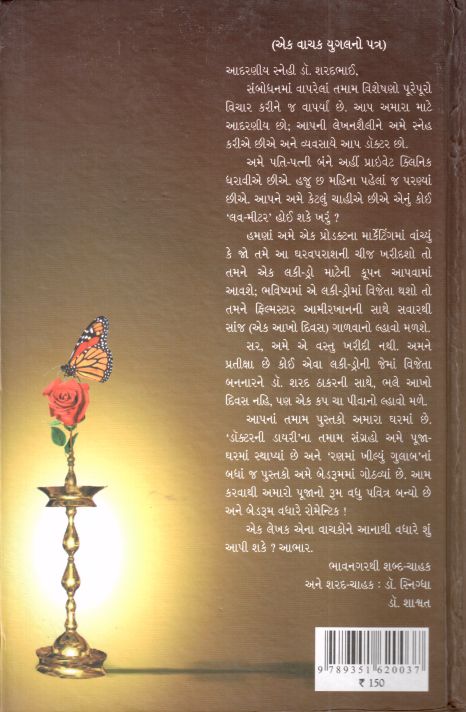 (એક વાચક યુગલનો પત્ર)
આદરણીય સ્નેહી ડૉ. શરદભાઈ,
સંબોધનમાં વાપરેલાં તમામ વિશેષણો પૂરેપૂરો
વિચાર કરીને જ વાપર્યાં છે. આપ અમારા માટે
આદરણીય છો; આપની લેખનશૈલીને અમે સ્નેહ
કરીએ છીએ અને વ્યવસાયે આપ ડૉક્ટર છો.
અમે પતિ-પત્ની બંને અહીં પ્રાઇવેટ ક્લિનિક
ધરાવીએ છીએ. હજુ છ મહિના પહેલાં જ પરણ્યાં
છીએ. આપને અમે કેટલું ચાહીએ છીએ એનું કોઈ
‘લવ-મીટર’ હોઈ શકે ખરું ?
હમણાં અમે એક પ્રોડક્ટના માર્કેટિંગમાં વાંચ્યું
કે જો તમે આ ઘરવપરાશની ચીજ ખરીદશો તો
તમને એક લકી-ડ્રો માટેની કૂપન આપવામાં
આવશે; ભવિષ્યમાં એ લકી-ડ્રોમાં વિજેતા થશો તો
તમને ફિલ્મસ્ટાર આમીરખાનની સાથે સવારથી
સાંજ (એક આખો દિવસ) ગાળવાનો લ્હાવો મળશે.
સર, અમે એ વસ્તુ ખરીદી નથી. અમને
પ્રતીક્ષા છે કોઈ એવા લકી-ડ્રોની જેમાં વિજેતા
બનનારને ડૉ. શરદ ઠાકરની સાથે, ભલે આખો
દિવસ નહિ, પણ એક કપ ચા પીવાનો લ્હાવો મળે.
આપનાં તમામ પુસ્તકો અમારા ઘરમાં છે.
‘ડૉક્ટરની ડાયરી’ના તમામ સંગ્રહો અમે પૂજા-
ઘરમાં સ્થાપ્યાં છે અને ‘રણમાં ખીલ્યું ગુલાબ’નાં
બધાં જ પુસ્તકો અમે બેડરૂમમાં ગોઠવ્યાં છે. આમ
કરવાથી અમારો પૂજાનો રૂમ વધુ પવિત્ર બન્યો છે
અને બેડરૂમ વધારે રોમેન્ટિક !
એક લેખક એના વાચકોને આનાથી વધારે શું
આપી શકે ? આભાર.
ભાવનગરથી શબ્દ-ચાહક
અને શરદ-ચાહક : ડૉ. સ્નિગ્ધા
ડૉ. શાશ્વત
9 789351 620037
₹ 150